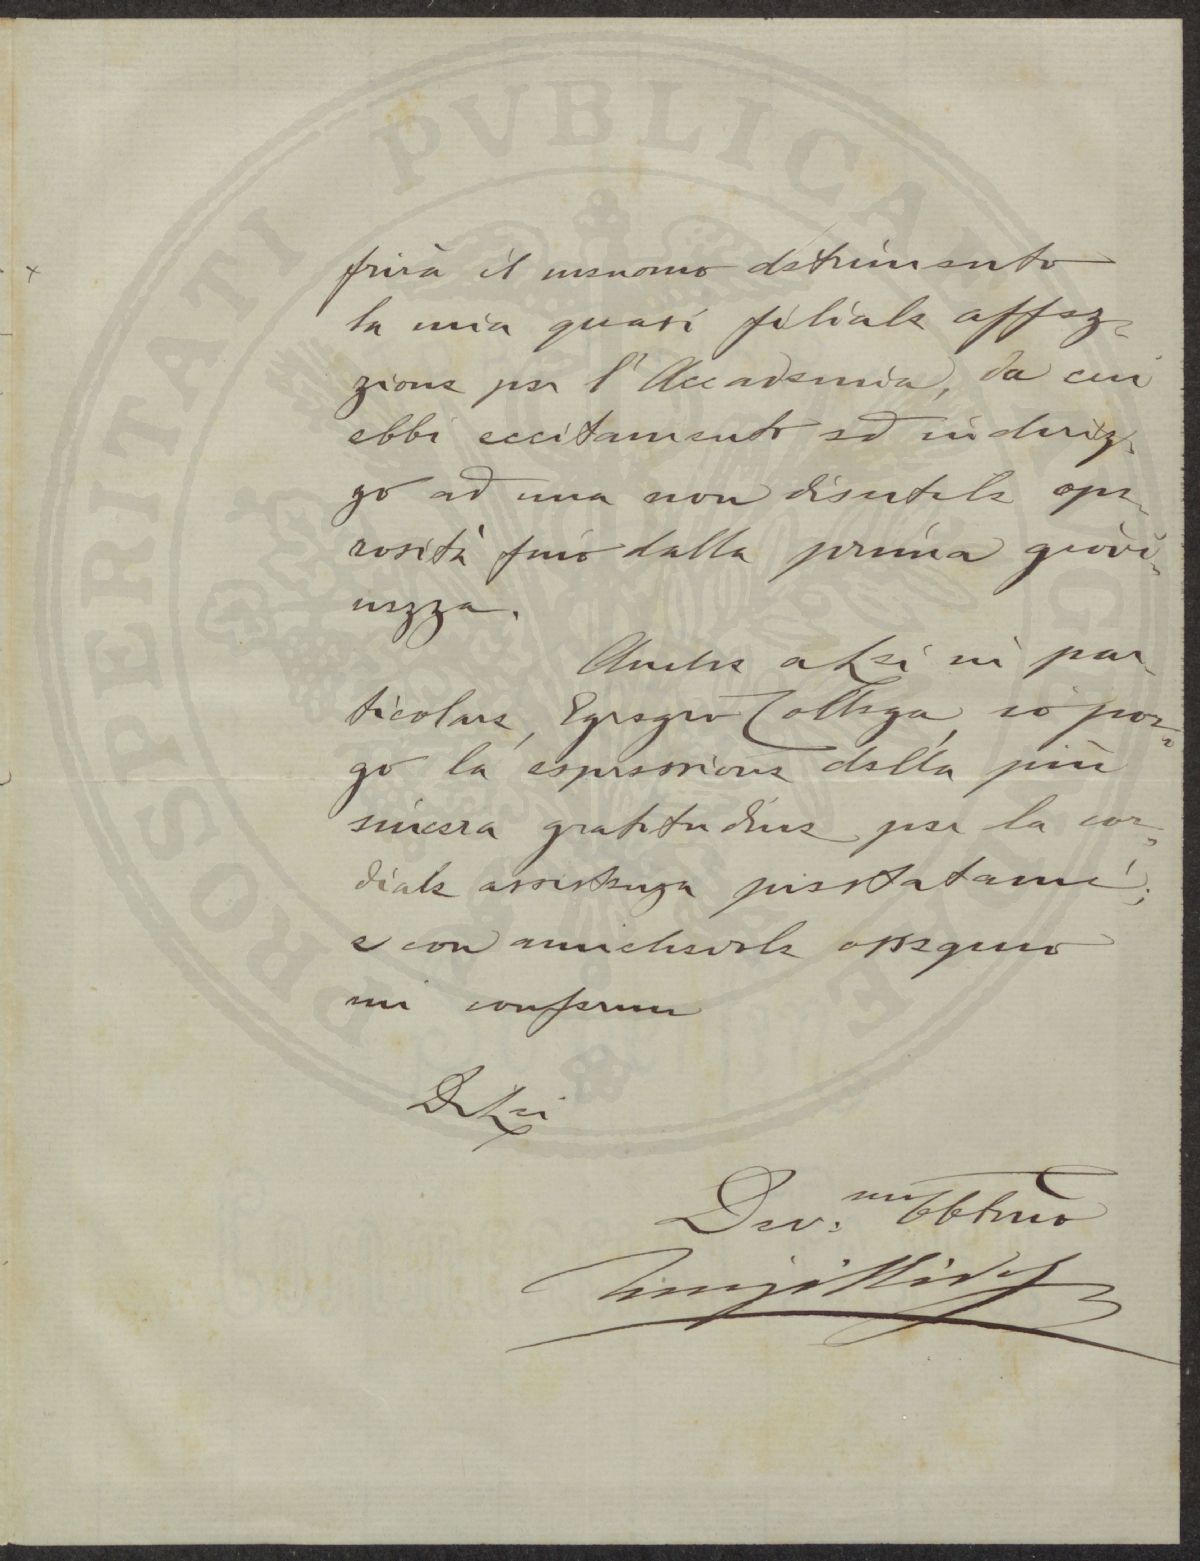 PROSPERITATI PVBLICAE
frirà il menomo detrimento
la mia quasi filiale affez-
zione per l'Accademia, da cui
ebbi eccitamento ed indiriz-
zo ad una non disutile ope-
rosità fino dalla prima giovi-
nezza.
Anche a Lei in par-
ticolare, Egregio Collega, io por-
go la espressione della più
sincera gratitudine per la cor-
diale assistenza prestatami;
e con amichevole ossequio
mi confermo
Di Lei
Dev.mo Obbmo